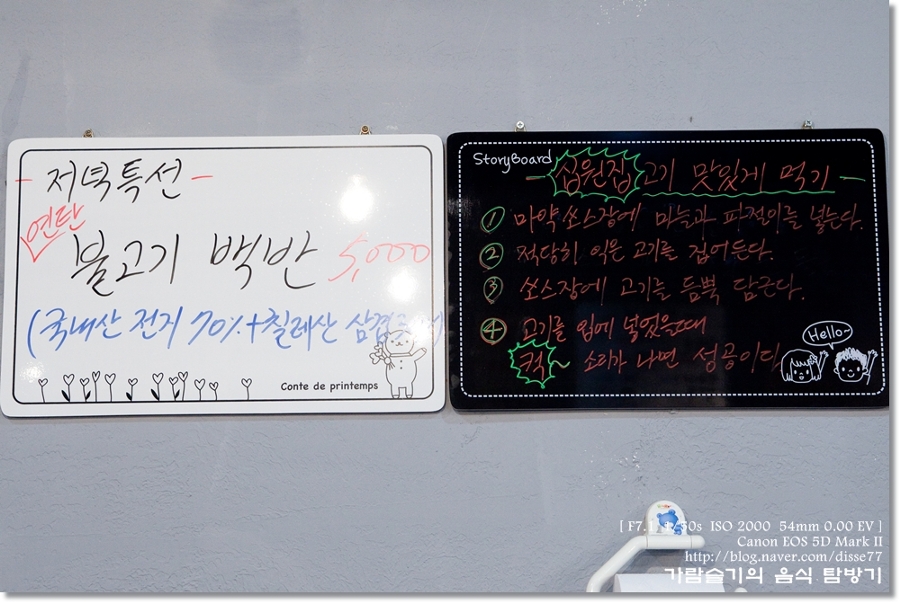 - 저녁특선 -
연탄
불고기 백반 5,000
(국내산 전지 70%+칠레산
Conte de printemps
StoryBoard
- 십원집 고기 맛있게 먹기 -
① 마약쏘스장에 마늘과 파절이를 넣는다.
② 적당히 익은 고기를 집어든다.
③ 쏘스장에 고기를 듬뿍 담근다.
④ 고기를 입에 넣었을때
컥~ 소리가 나면 성공이다.
Hello~
ISO 2000 54mm 0.00 EV ]
Canon EOS 5D Mark II
http://blog.naver.com/disse77
가람슬기의 음식 탐방기